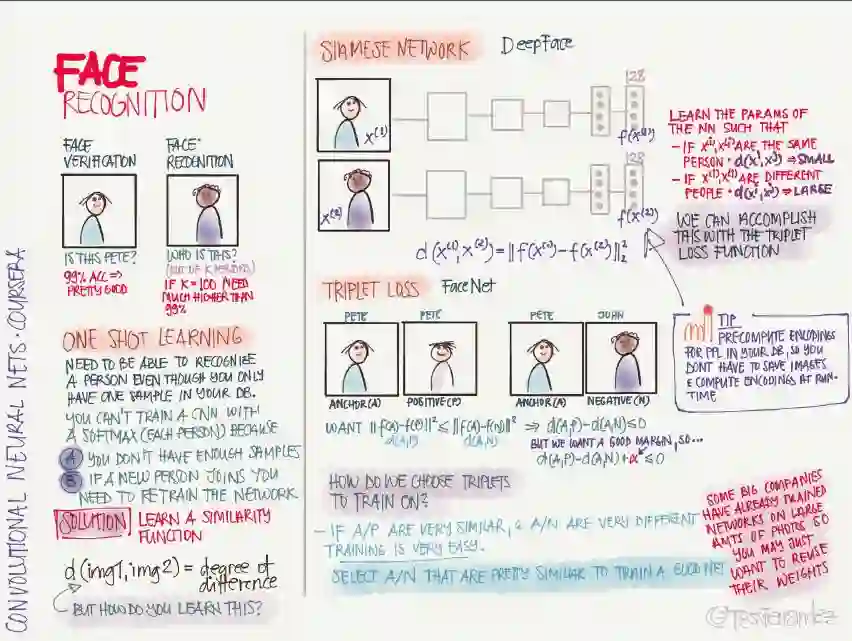 CONVOLUTIONAL NEURAL NETS · COURSERA
FACE
RECOGNITION
FACE
VERIFICATION
IS THIS PETE?
99% ACC ⇒
PRETTY GOOD
FACE
RECOGNITION
WHO IS THIS?
(OUT OF K PERSONS)
IF K=100 NEED
MUCH HIGHER THAN
99%
ONE SHOT LEARNING
NEED TO BE ABLE TO RECOGNIZE
A PERSON EVEN THOUGH YOU ONLY
HAVE ONE SAMPLE IN YOUR DB.
YOU CAN'T TRAIN A CNN WITH
A SOFTMAX (EACH PERSON) BECAUSE
A YOU DON'T HAVE ENOUGH SAMPLES
B IF A NEW PERSON JOINS YOU
NEED TO RETRAIN THE NETWORK
SOLUTION LEARN A SIMILARITY
FUNCTION
d(img1, img2) = degree of
difference
BUT HOW DO YOU LEARN THIS?
SIAMESE NETWORK DeepFace
x⁽¹⁾
128
f(x⁽¹⁾)
x⁽²⁾
128
f(x⁽²⁾)
d(x⁽¹⁾, x⁽²⁾) = ‖f(x⁽¹⁾) - f(x⁽²⁾)‖₂²
LEARN THE PARAMS OF
THE NN SUCH THAT
- IF x⁽ⁱ⁾, x⁽ʲ⁾ ARE THE SAME
PERSON · d(xⁱ, xʲ) ⇒ SMALL
- IF x⁽ⁱ⁾, x⁽ʲ⁾ ARE DIFFERENT
PEOPLE · d(xⁱ, xʲ) ⇒ LARGE
WE CAN ACCOMPLISH
THIS WITH THE TRIPLET
LOSS FUNCTION
TIP
PRECOMPUTE ENCODINGS
FOR PPL IN YOUR DB, SO YOU
DONT HAVE TO SAVE IMAGES
& COMPUTE ENCODINGS AT RUN-
TIME
TRIPLET LOSS FaceNet
PETE PETE PETE JOHN
ANCHOR (A) POSITIVE (P) ANCHOR (A) NEGATIVE (N)
WANT ‖f(A)-f(P)‖² ≤ ‖f(A)-f(N)‖² ⇒ d(A,P)-d(A,N) ≤ 0
d(A,P) d(A,N)
BUT WE WANT A GOOD MARGIN, SO...
d(A,P)-d(A,N)+α ≤ 0
HOW DO WE CHOOSE TRIPLETS
TO TRAIN ON?
- IF A/P ARE VERY SIMILAR, & A/N ARE VERY DIFFERENT
TRAINING IS VERY EASY.
SELECT A/N THAT ARE PRETTY SIMILAR TO TRAIN A GOOD NET
SOME BIG COMPANIES
HAVE ALREADY TRAINED
NETWORKS ON LARGE
AMTS OF PHOTOS SO
YOU MAY JUST
WANT TO REUSE
THEIR WEIGHTS